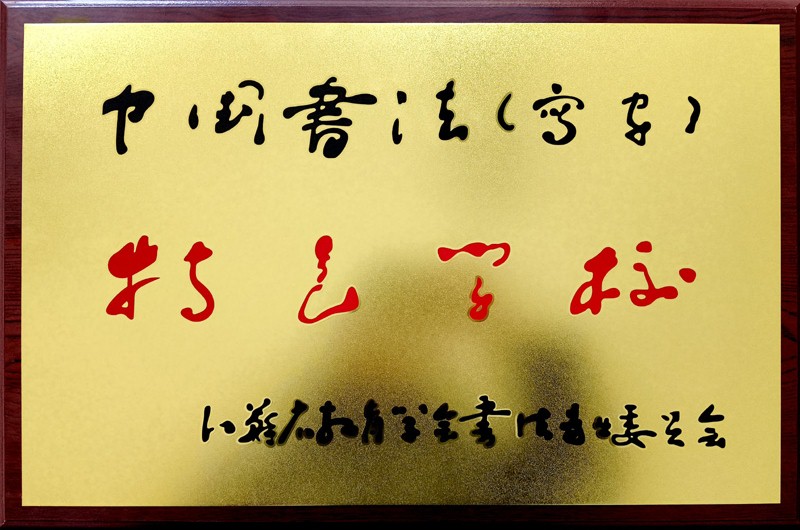 中国书法(写字)
特色学校
江苏省教育学会书法专业委员会